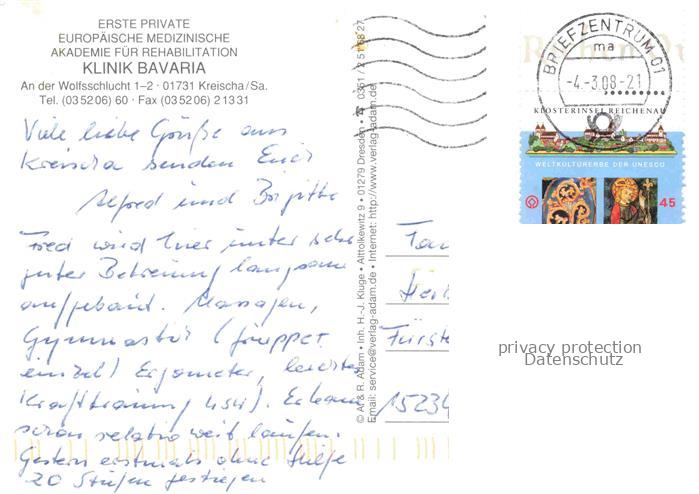 ERSTE PRIVATE
EUROPÄISCHE MEDIZINISCHE
AKADEMIE FÜR REHABILITATION
KLINIK BAVARIA
An der Wolfsschlucht 1–2 · 01731 Kreischa/Sa.
Tel. (03 52 06) 60 · Fax (03 52 06) 2 13 31
Viele liebe Grüße aus
Kreischa senden Euch
Alfred und Brigitte
Fred wird hier unter sehr
guter Betreuung langsam
aufgebaut. Massagen,
Gymnastik (Gruppe +
einzel) Ergometer, leichtes
Krafttraining usw. Er kann
schon relativ weit laufen.
Gestern erstmals ohne Hilfe
20 Stufen gestiegen
© A. & R. Adam • Inh. H.-J. Kluge • Alttolkewitz 9 • 01279 Dresden • ☎ 0351 / 2 51 58 27
Email: service@verlag-adam.de • Internet: http://www.verlag-adam.de
BRIEFZENTRUM 01
ma
-4.-3.08-21
KLOSTERINSEL REICHENAU
WELTKULTURERBE DER UNESCO
45
Fürste
15234
privacy protection
Datenschutz